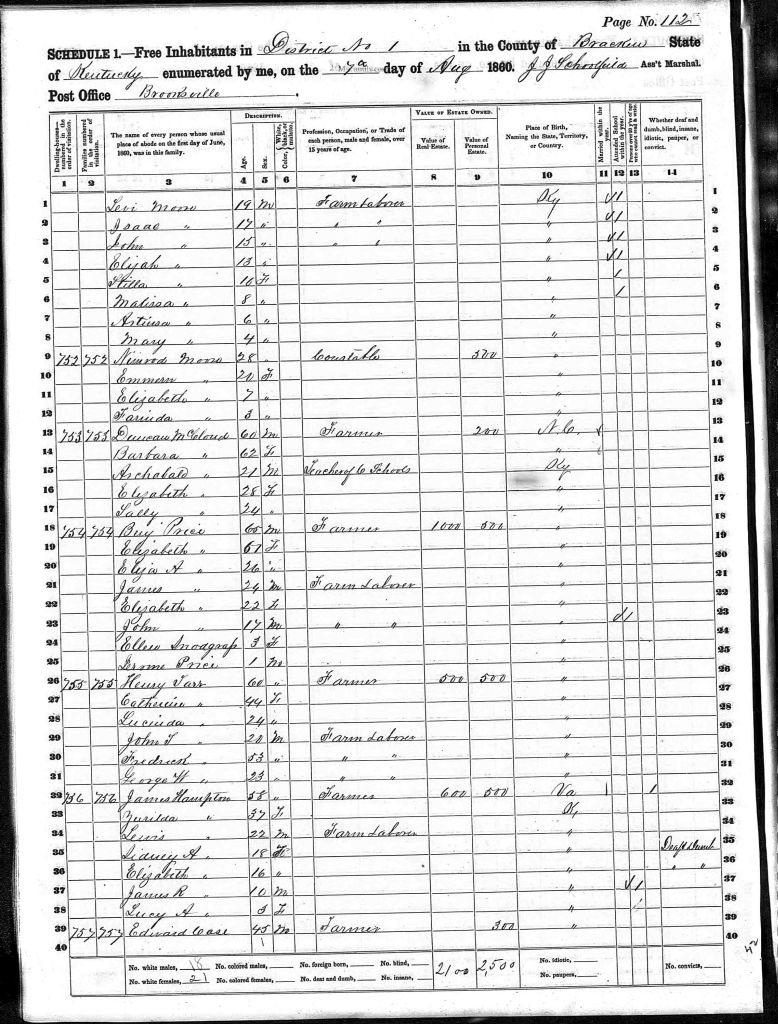 Page No. 112
SCHEDULE 1.—Free Inhabitants in District No 1 in the County of Bracken State
of Kentucky enumerated by me, on the 7th day of Aug 1860. J J Schoolfield Ass't Marshal.
Post Office Brooksville
Dwelling-houses—numbered in the order of visitation.
Families numbered in the order of visitation.
The name of every person whose usual place of abode on the first day of June, 1860, was in this family.
DESCRIPTION.
Age.
Sex.
Color, White, black, or mulatto.
Profession, Occupation, or Trade of each person, male and female, over 15 years of age.
VALUE OF ESTATE OWNED.
Value of Real Estate.
Value of Personal Estate.
Place of Birth, Naming the State, Territory, or Country.
Married within the year.
Attended School within the year.
Whether deaf and dumb, blind, insane, idiotic, pauper, or convict.
1 2 3 4 5 6 7 8 9 10 11 12 13 14
1 Levi Moore 19 M Farm Laborer Ky 1 1
2 Isaac " 17 " " " " 1 2
3 John " 15 " " " " 1 3
4 Elijah " 13 " " 1 4
5 10 F " 1 5
6 Malissa " 8 " " 1 6
7 " 6 " " 7
8 Mary " 4 " " 8
9 752 752 Nimrod Moore 28 " Constable 300 " 9
10 " F " 10
11 Elizabeth " 7 " " 11
12 " 3 " " 12
13 753 753 Duncan McCloud 60 M Farmer 200 N.C. 13
14 Barbara " 62 F " 14
15 Archabald " 21 M Teacher of C Schools Ky 15
16 Elizabeth " 28 F " 16
17 Sally " 24 " " 17
18 754 754 Benj Price 65 M Farmer 1000 500 " 18
19 Elizabeth " F " 19
20 Eliza A " 26 " " 20
21 James " 24 M Farm Laborer " 21
22 Elizabeth " 22 F " 22
23 John " 17 M " " " 1 23
24 Ellen Snodgrass 3 F " 24
25 Price 1 M " 25
26 755 755 Henry Tarr 60 " Farmer 500 500 " 26
27 Catherine " 44 F " 27
28 Lucinda " 24 " " 28
29 John T " M Farm Laborer " 29
30 Fredrick " 53 " " " " 30
31 George W " 23 " " " " 31
32 756 756 James Hampton 58 " Farmer 600 500 Va 1 32
33 Zurilda " 37 F Ky 33
34 Lewis " 22 M Farm Laborer " 34
35 Sidney A " 18 F " Deaf & Dumb 35
36 Elizabeth " 16 " " " " 36
37 James R " 10 M " 1 37
38 Lucy A " 3 F " 38
39 757 757 Edward Case 45 M Farmer 300 " 39
40 40
No. white males, 18 No. colored males, No. foreign born, No. blind, 2100 2,500 No. idiotic, No. convicts,
No. white females, 21 No. colored females, No. deaf and dumb, No. insane, No. paupers,